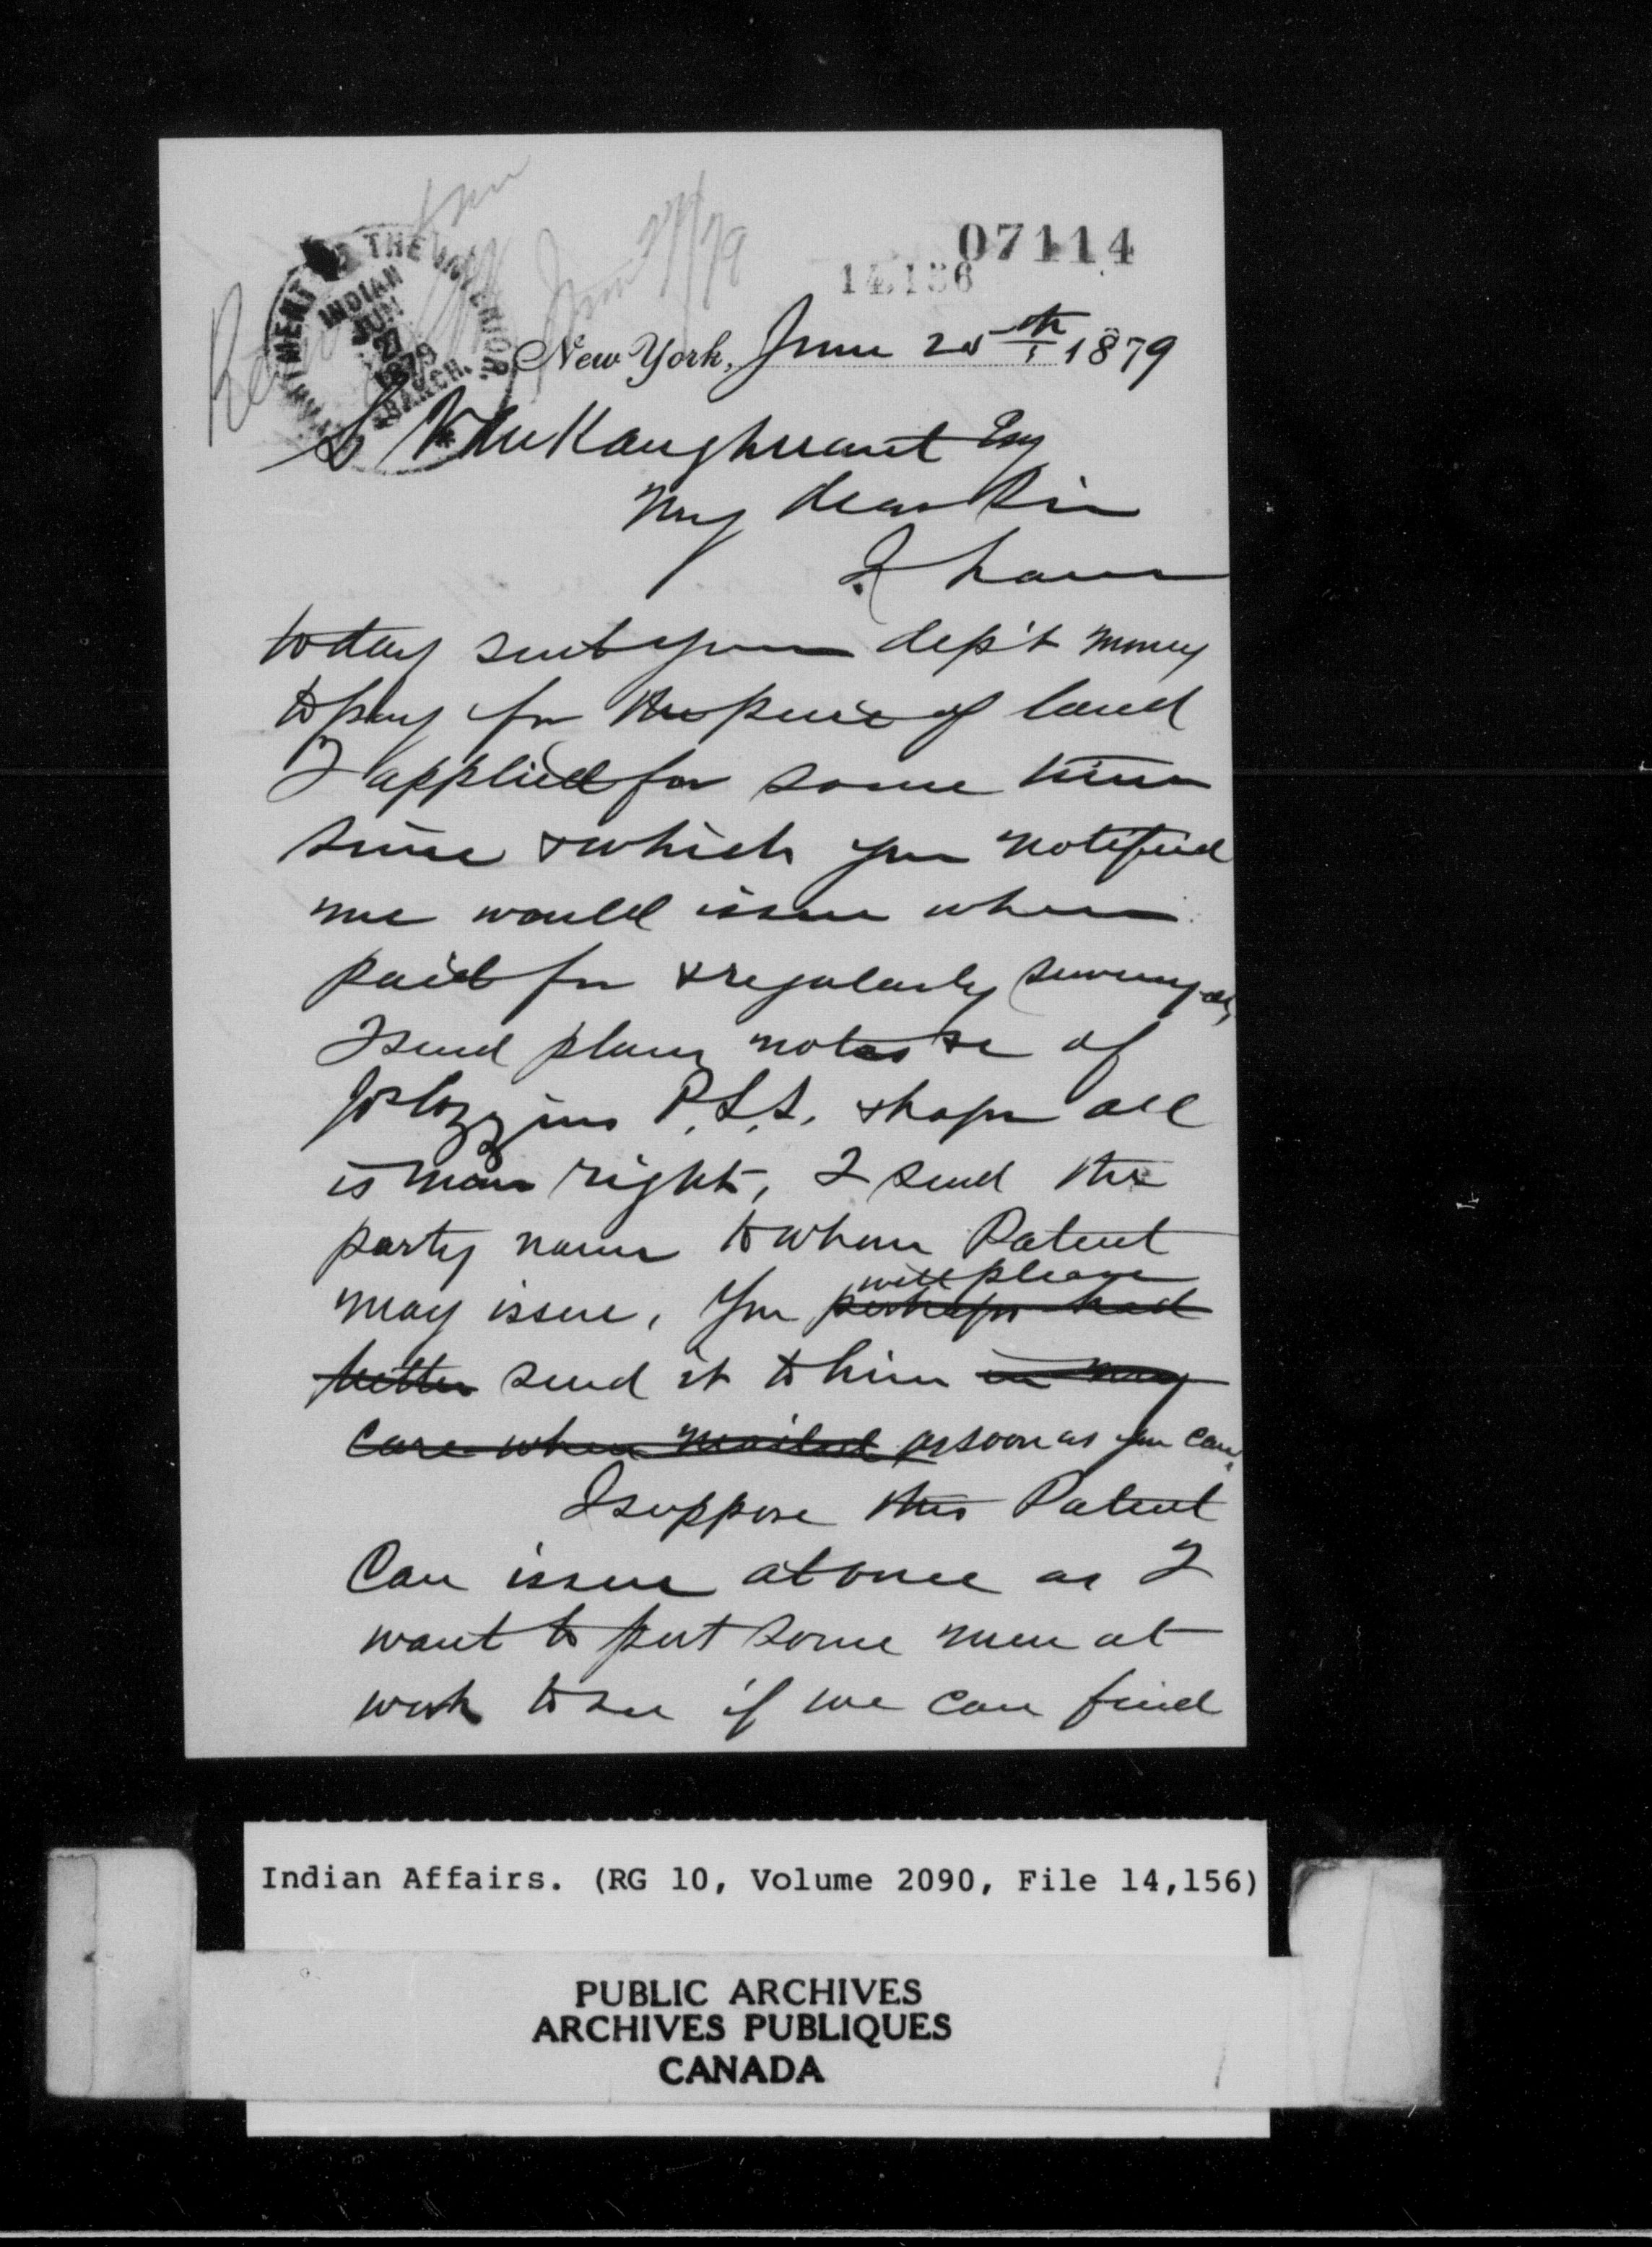 07114
14,156
DEPARTMENT OF THE INTERIOR.
INDIAN
JUN
27
1879
BRANCH.
June 27/79
New York, June 25th 1879
L VanKoughnent Esq
My dear Sir
I have
today sent your dep't money
to pay for the piece of land
I applied for some time
since & which you notified
me would issue when
paid for & regularly surveyed,
I send plan, notes &c of
Jos Cozzins P.L.S. & hope all
is now right, I send the
party name to whom Patent
may issue, You perhaps had will please
better send it to him in my
care when mailed as soon as you can.
I suppose this Patent
Can issue at once as I
want to put some men at
work to see if we can find
Indian Affairs. (RG 10, Volume 2090, File 14,156)
PUBLIC ARCHIVES
ARCHIVES PUBLIQUES
CANADA